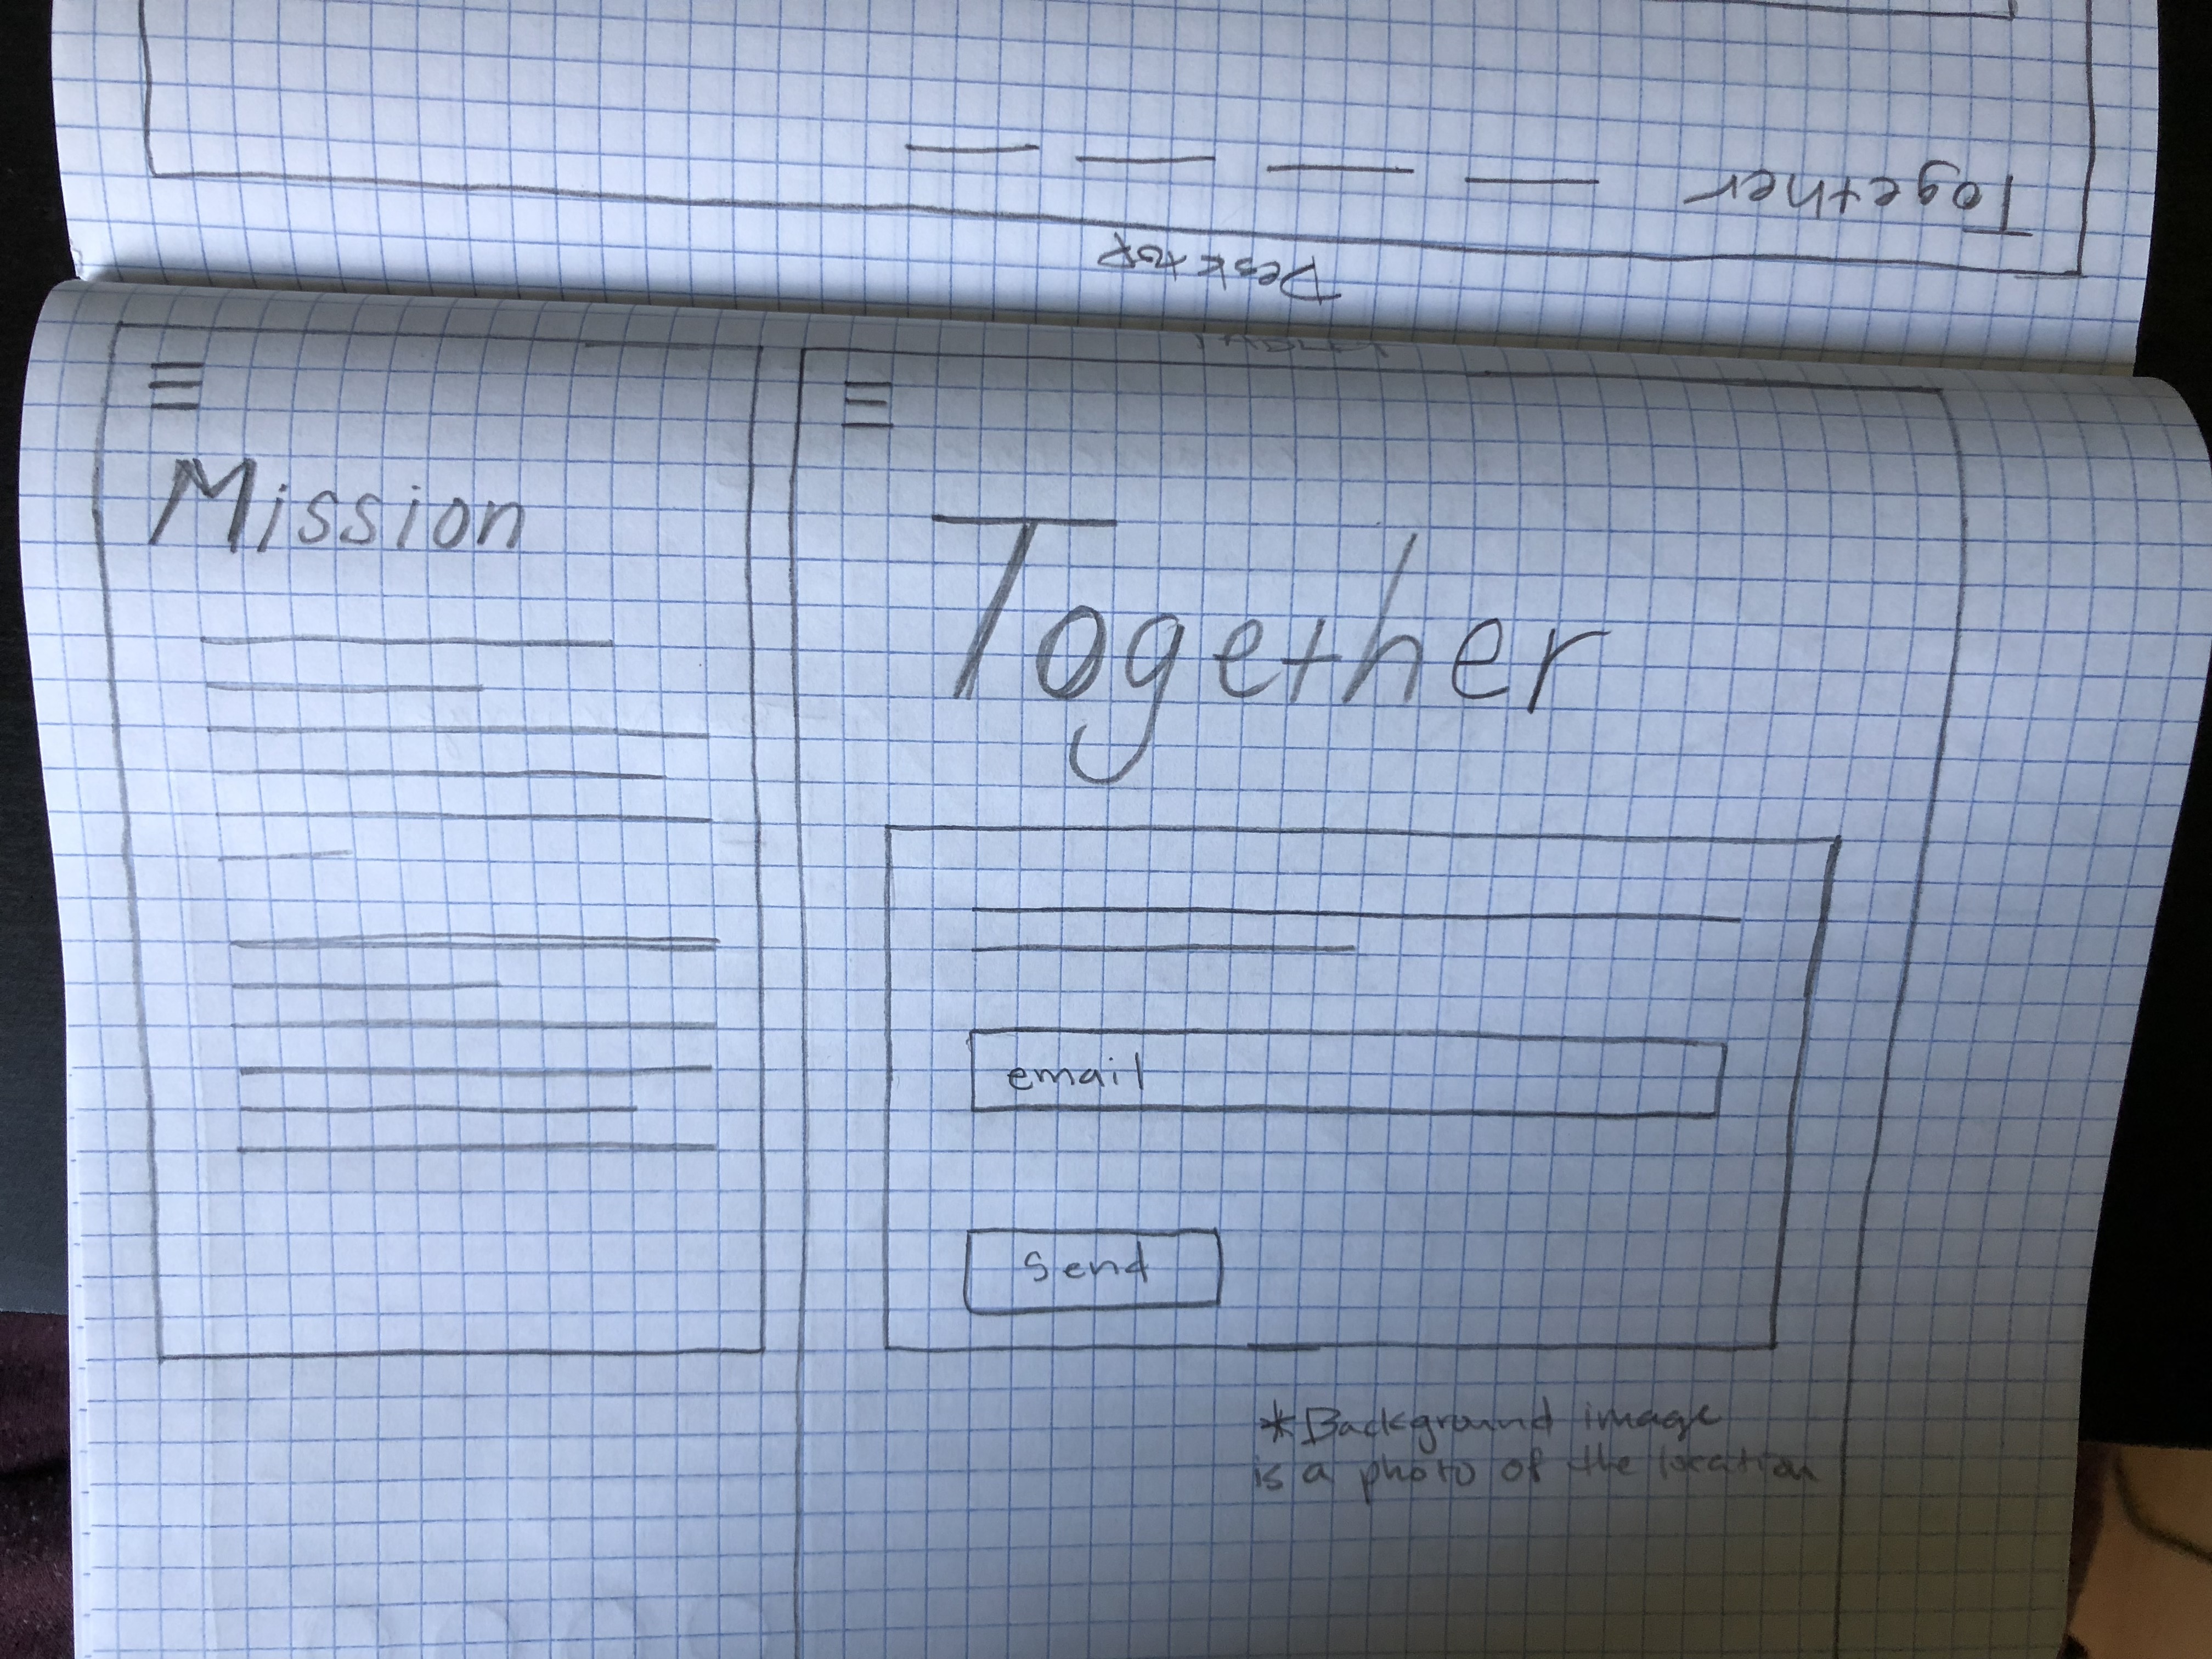 Mission
Together
email
Send
*Background image
is a photo of the location
Desktop
Together